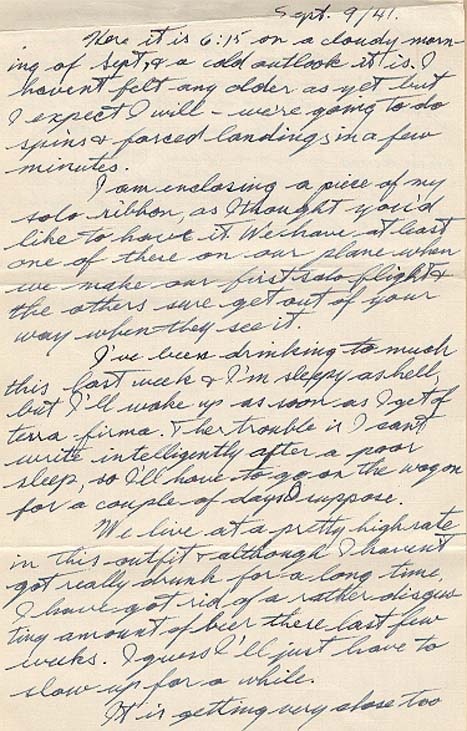 Sept. 9/41.
Here it is 6:15 on a cloudy morn-
ing of Sept, & a cold outlook it is. I
haven't felt any older as yet but
I expect I will - we're going to do
spins & forced landings in a few
minutes.
I am enclosing a piece of my
solo ribbon, as I thought you'd
like to have it. We have at least
one of these on our plane when
we make our first solo flight &
the others sure get out of your
way when they see it.
I've been drinking to much
this last week & I'm sleepy as hell,
but I'll wake up as soon as I get of
terra firma. The trouble is I can't
write intelligently after a poor
sleep, so I'll have to go on the wagon
for a couple of days I suppose.
We live at a pretty high rate
in this outfit & although I haven't
got really drunk for a long time,
I have got rid of a rather disgus
ting amount of beer these last few
weeks. I guess I'll just have to
slow up for a while.
It is getting very close too